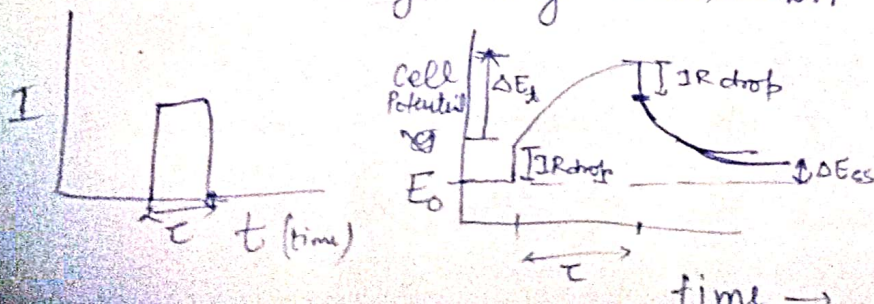 I
τ
t (time)
Cell
Potential
ΔE
IR drop
IR drop
E₀
ΔEss
τ
time →